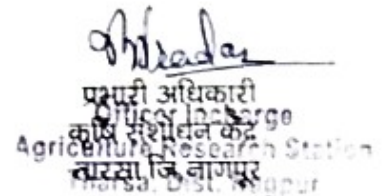 प्रभारी अधिकारी
Officer Incharge
कृषि संशोधन केंद्र
Agriculture Research Station
तारसा, जि. नागपूर
Tharsa, Dist. Nagpur